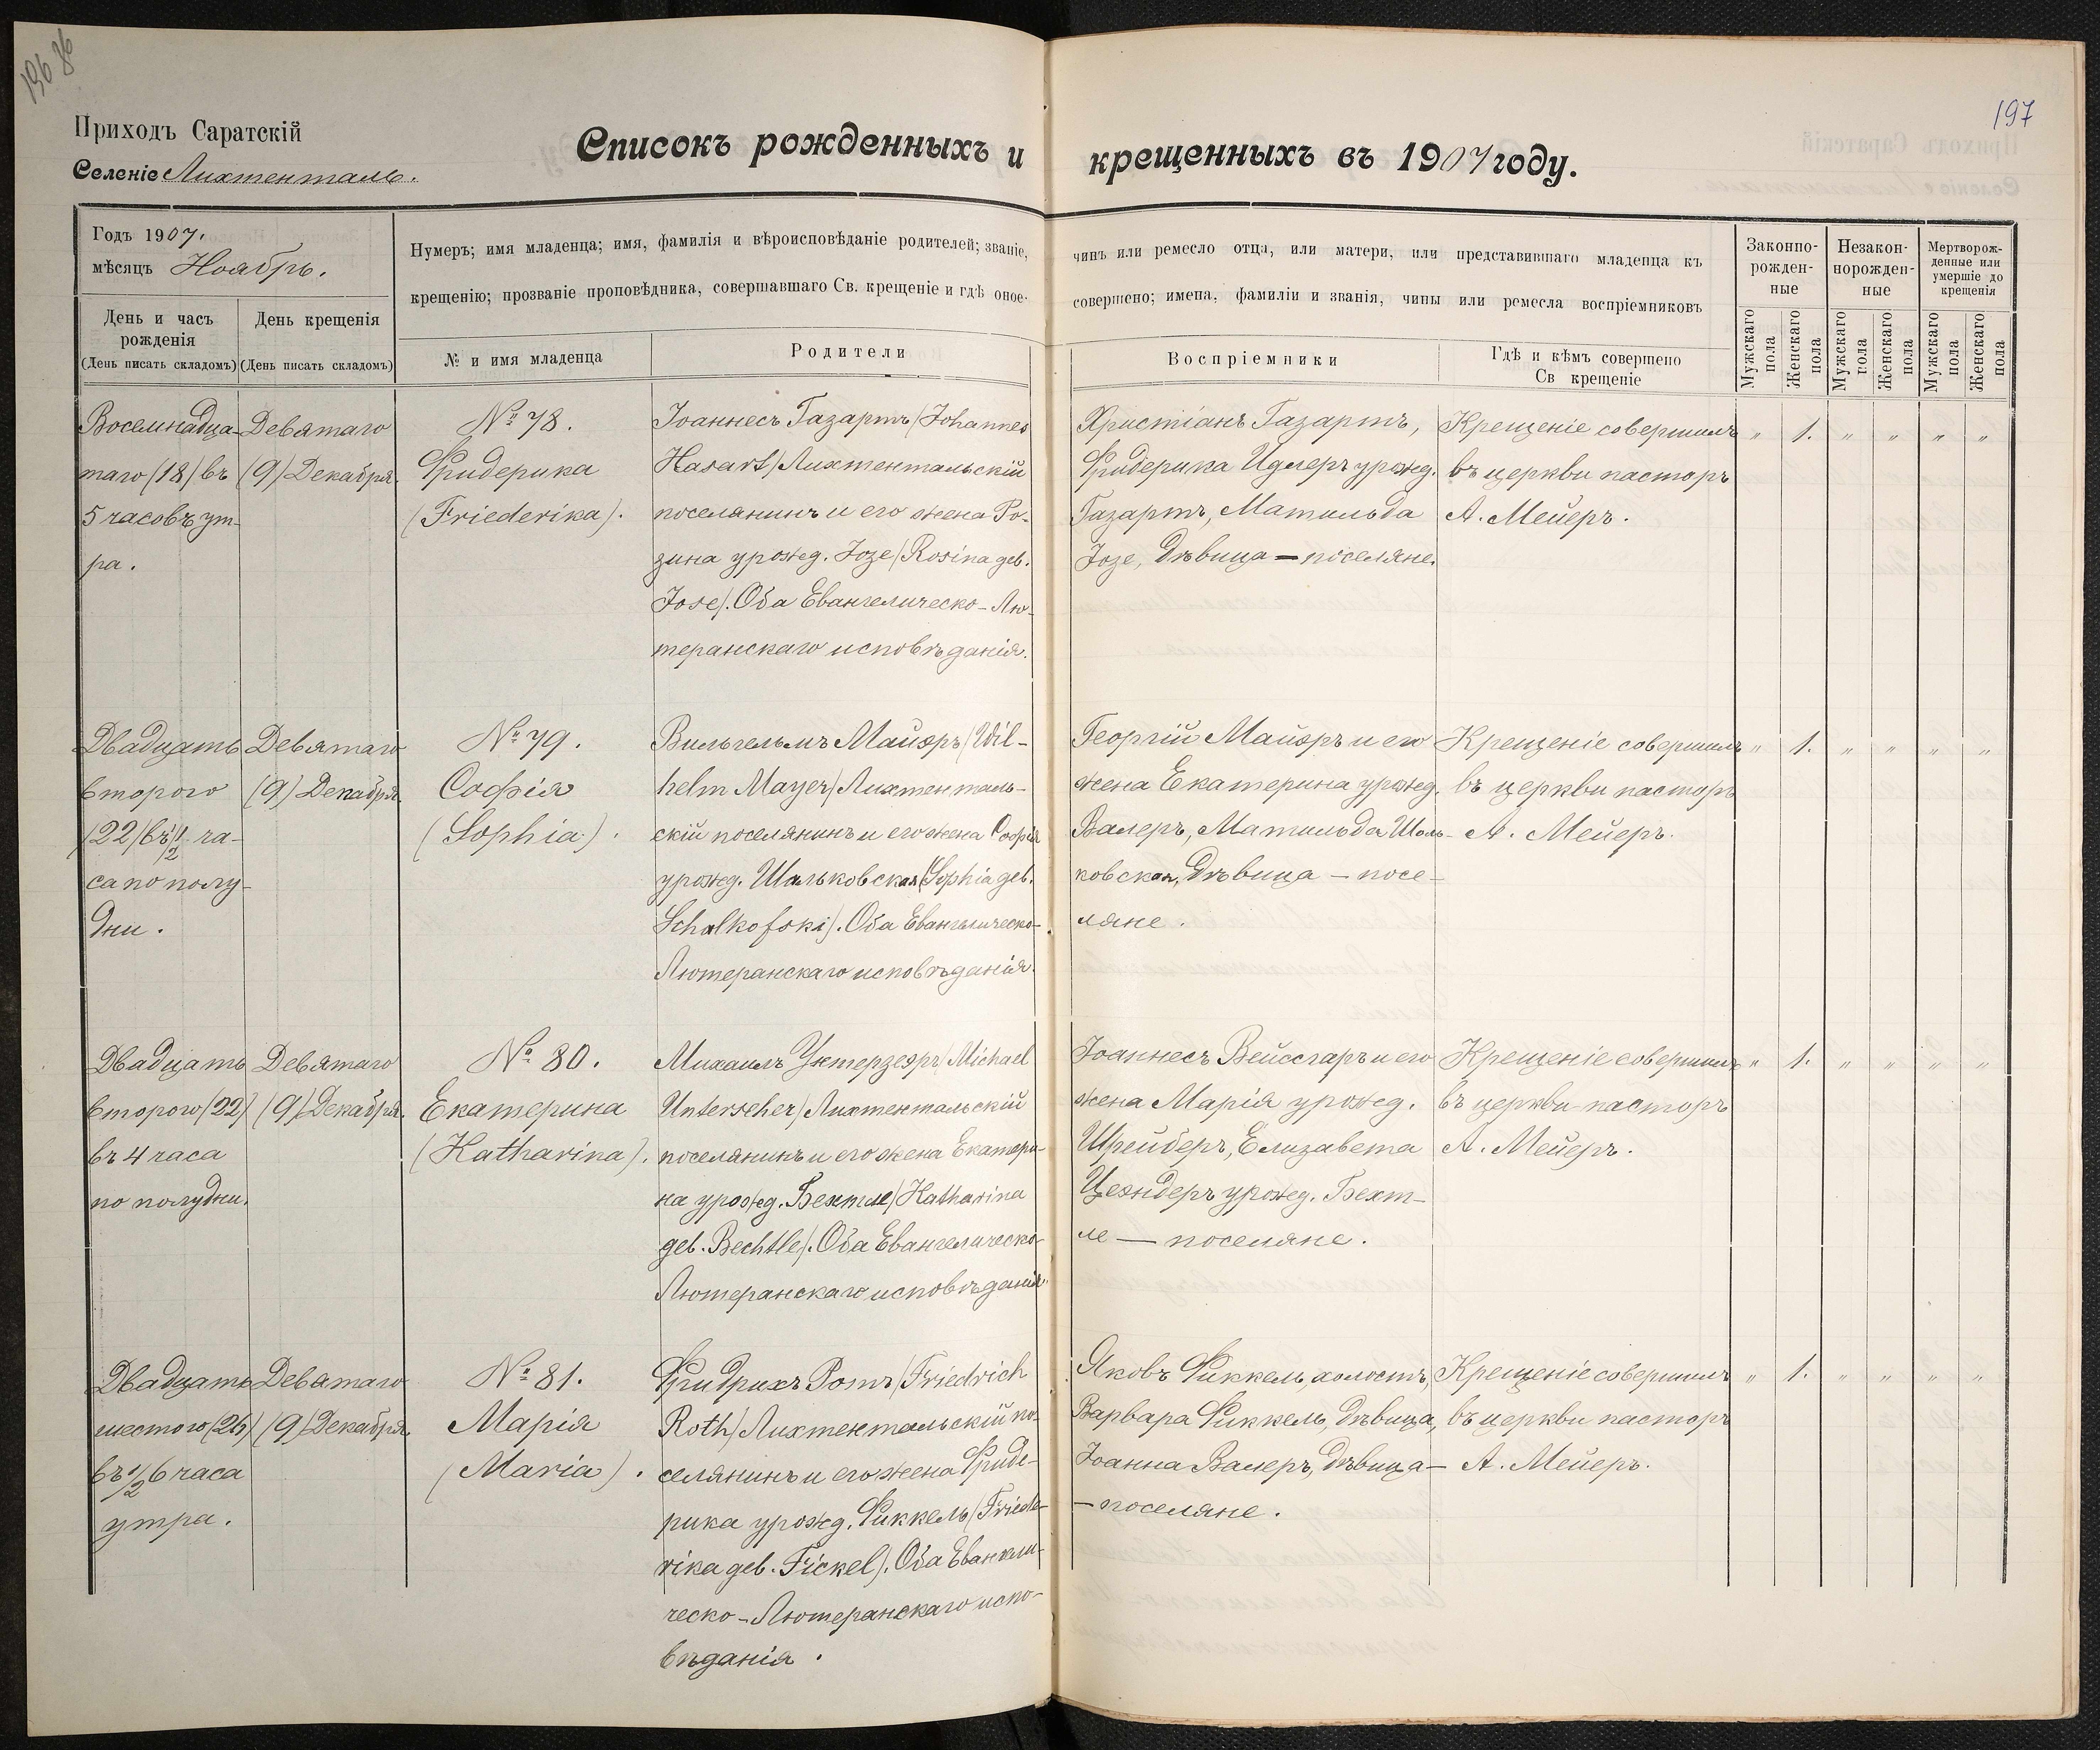 197
Приходъ Саратскій
Селеніе Лихтенталь.
Списокъ рожденныхъ и крещенныхъ въ 1907 году.
Годъ 1907.
мѣсяцъ Ноябрь.
Нумеръ; имя младенца; имя, фамилія и вѣроисповѣданіе родителей; званіе,
крещенію; прозваніе проповѣдника, совершавшаго Св. крещеніе и гдѣ оное
чинъ или ремесло отца, или матери, или представившаго младенца къ
совершено; имена, фамиліи и званія, чины или ремесла воспріемниковъ
Законно-
рожден-
ные
Незакон-
норожден-
ные
Мертворож-
денные или
умершіе до
крещенія
День и часъ
рожденія
(День писать складомъ)
День крещенія
(День писать складомъ)
№ и имя младенца
Родители
Воспріемники
Гдѣ и кѣмъ совершено
Св крещеніе
Мужскаго
пола
Женскаго
пола
Мужскаго
пола
Женскаго
пола
Мужскаго
пола
Женскаго
пола
Восемнадца-
таго (18) въ
5 часовъ ут-
ра.
Девятаго
(9) Декабря.
№ 78.
Фридерика
(Friederika).
Іоаннесъ Газартъ (Johannes
Hasart) Лихтентальскій
поселянинъ и его жена Ро-
зина урожд. Іозе (Rosina geb.
Jose). Оба Евангелическо-Лю-
теранскаго исповѣданія.
Христіанъ Газартъ,
Фридерика Идлеръ урожд.
Газартъ, Матильда
Іозе, дѣвица — поселяне.
Крещеніе совершилъ
въ церкви пасторъ
А. Мейеръ.
" 1. " " " "
Двадцать
второго
(22) въ ½ ча-
са по полу-
дни.
Девятаго
(9) Декабря
№ 79.
Софія
(Sophia).
Вильгельмъ Майэръ (Wil-
helm Mayer) Лихтенталь-
скій поселянинъ и его жена Софія
урожд. Шальковская (Sophia geb.
Schalkofski). Оба Евангелическо-
Лютеранскаго исповѣданія.
Георгій Майэръ и его
жена Екатерина урожд.
Валеръ, Матильда Шаль-
ковская, дѣвица — посе-
ляне.
Крещеніе совершилъ
въ церкви пасторъ
А. Мейеръ.
" 1. " " " "
Двадцать
второго (22)
въ 4 часа
по полудни.
Девятаго
(9) Декабря.
№ 80.
Екатерина
(Katharina).
Михаилъ Унтерзеэръ (Michael
Unterseher) Лихтентальскій
поселянинъ и его жена Екатери-
на урожд. Бехтле (Katharina
geb. Bechtle). Оба Евангелическо-
Лютеранскаго исповѣданія.
Іоаннесъ Вейссгаръ и его
жена Марія урожд.
Шрейберъ, Елизавета
Цеэндеръ урожд. Бехт-
ле — поселяне.
Крещеніе совершилъ
въ церкви пасторъ
А. Мейеръ.
" 1. " " " "
Двадцать
шестого (26)
въ ½ 6 часа
утра.
Девятаго
(9) Декабря.
№ 81.
Марія
(Maria).
Фридрихъ Ротъ (Friedrich
Roth) Лихтентальскій по-
селянинъ и его жена Фриде-
рика урожд. Фиккель (Friede-
rika geb. Fickel). Оба Евангели-
ческо-Лютеранскаго испо-
вѣданія.
Яковъ Фиккель, холостъ,
Варвара Фиккель, дѣвица,
Іоанна Валеръ, дѣвица —
— поселяне.
Крещеніе совершилъ
въ церкви пасторъ
А. Мейеръ.
" 1. " " " "